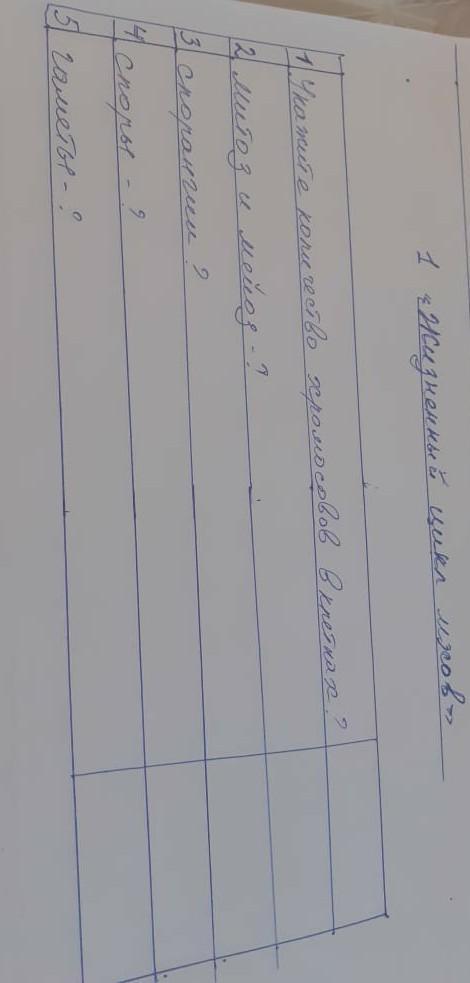 1 "Жизненный цикл мхов"
1 Укажите количество хромосовов в клетках?
2 Митоз и мейоз - ?
3 спорангии ?
4 споры - ?
5 гаметы - ?